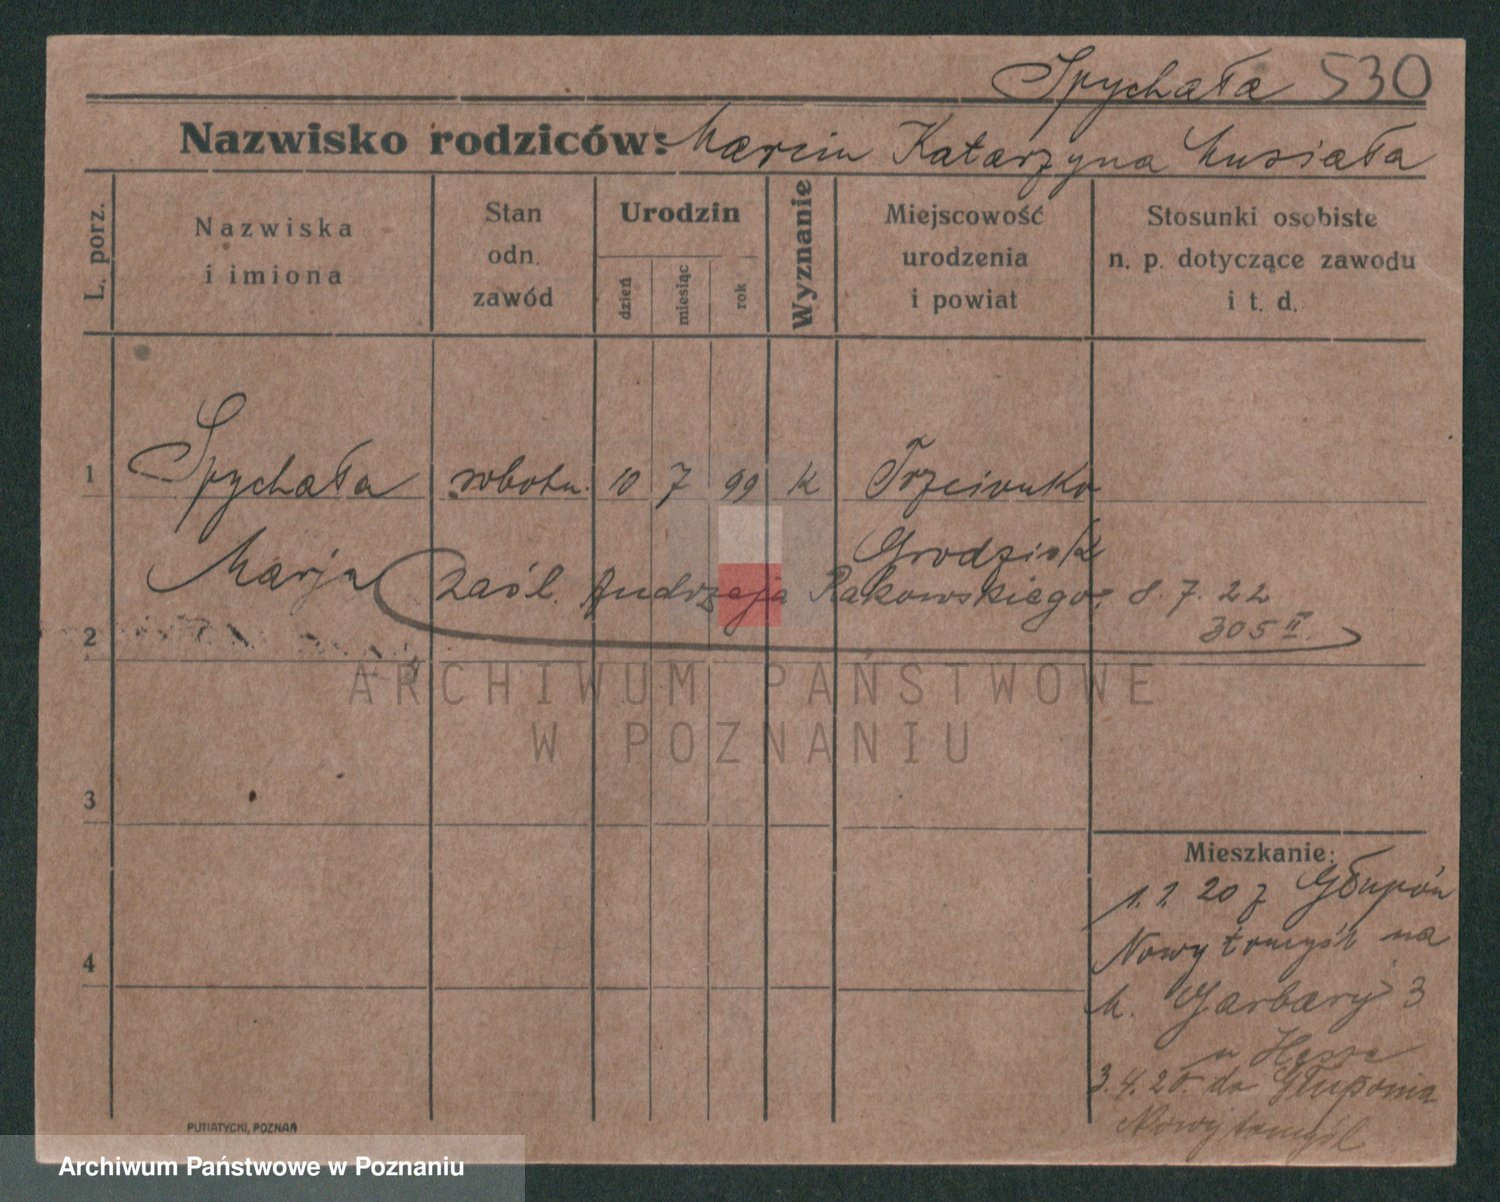 Spychała 530
Nazwisko rodziców: Marcin Katarzyna Musiała
L. porz.
Nazwiska
i imiona
Stan
odn.
zawód
Urodzin
dzień
miesiąc
rok
Wyznanie
Miejscowość
urodzenia
i powiat
Stosunki osobiste
n. p. dotyczące zawodu
i t. d.
1 Spychała robotn. 10 7 99 k Trzcionka
Grodzisk
Marja zaśl. Andrzeja Rakowskiego, 8. 7. 22
305 II.
2
ARCHIWUM PAŃSTWOWE
W POZNANIU
3
Mieszkanie:
1. 2 20 z Głupón
Nowytomyśl na
4
M. Garbary 3
u Hesse
3. 4. 20 do Głuponia
Nowytomyśl
PUTIATYCKI, POZNAŃ
Archiwum Państwowe w Poznaniu